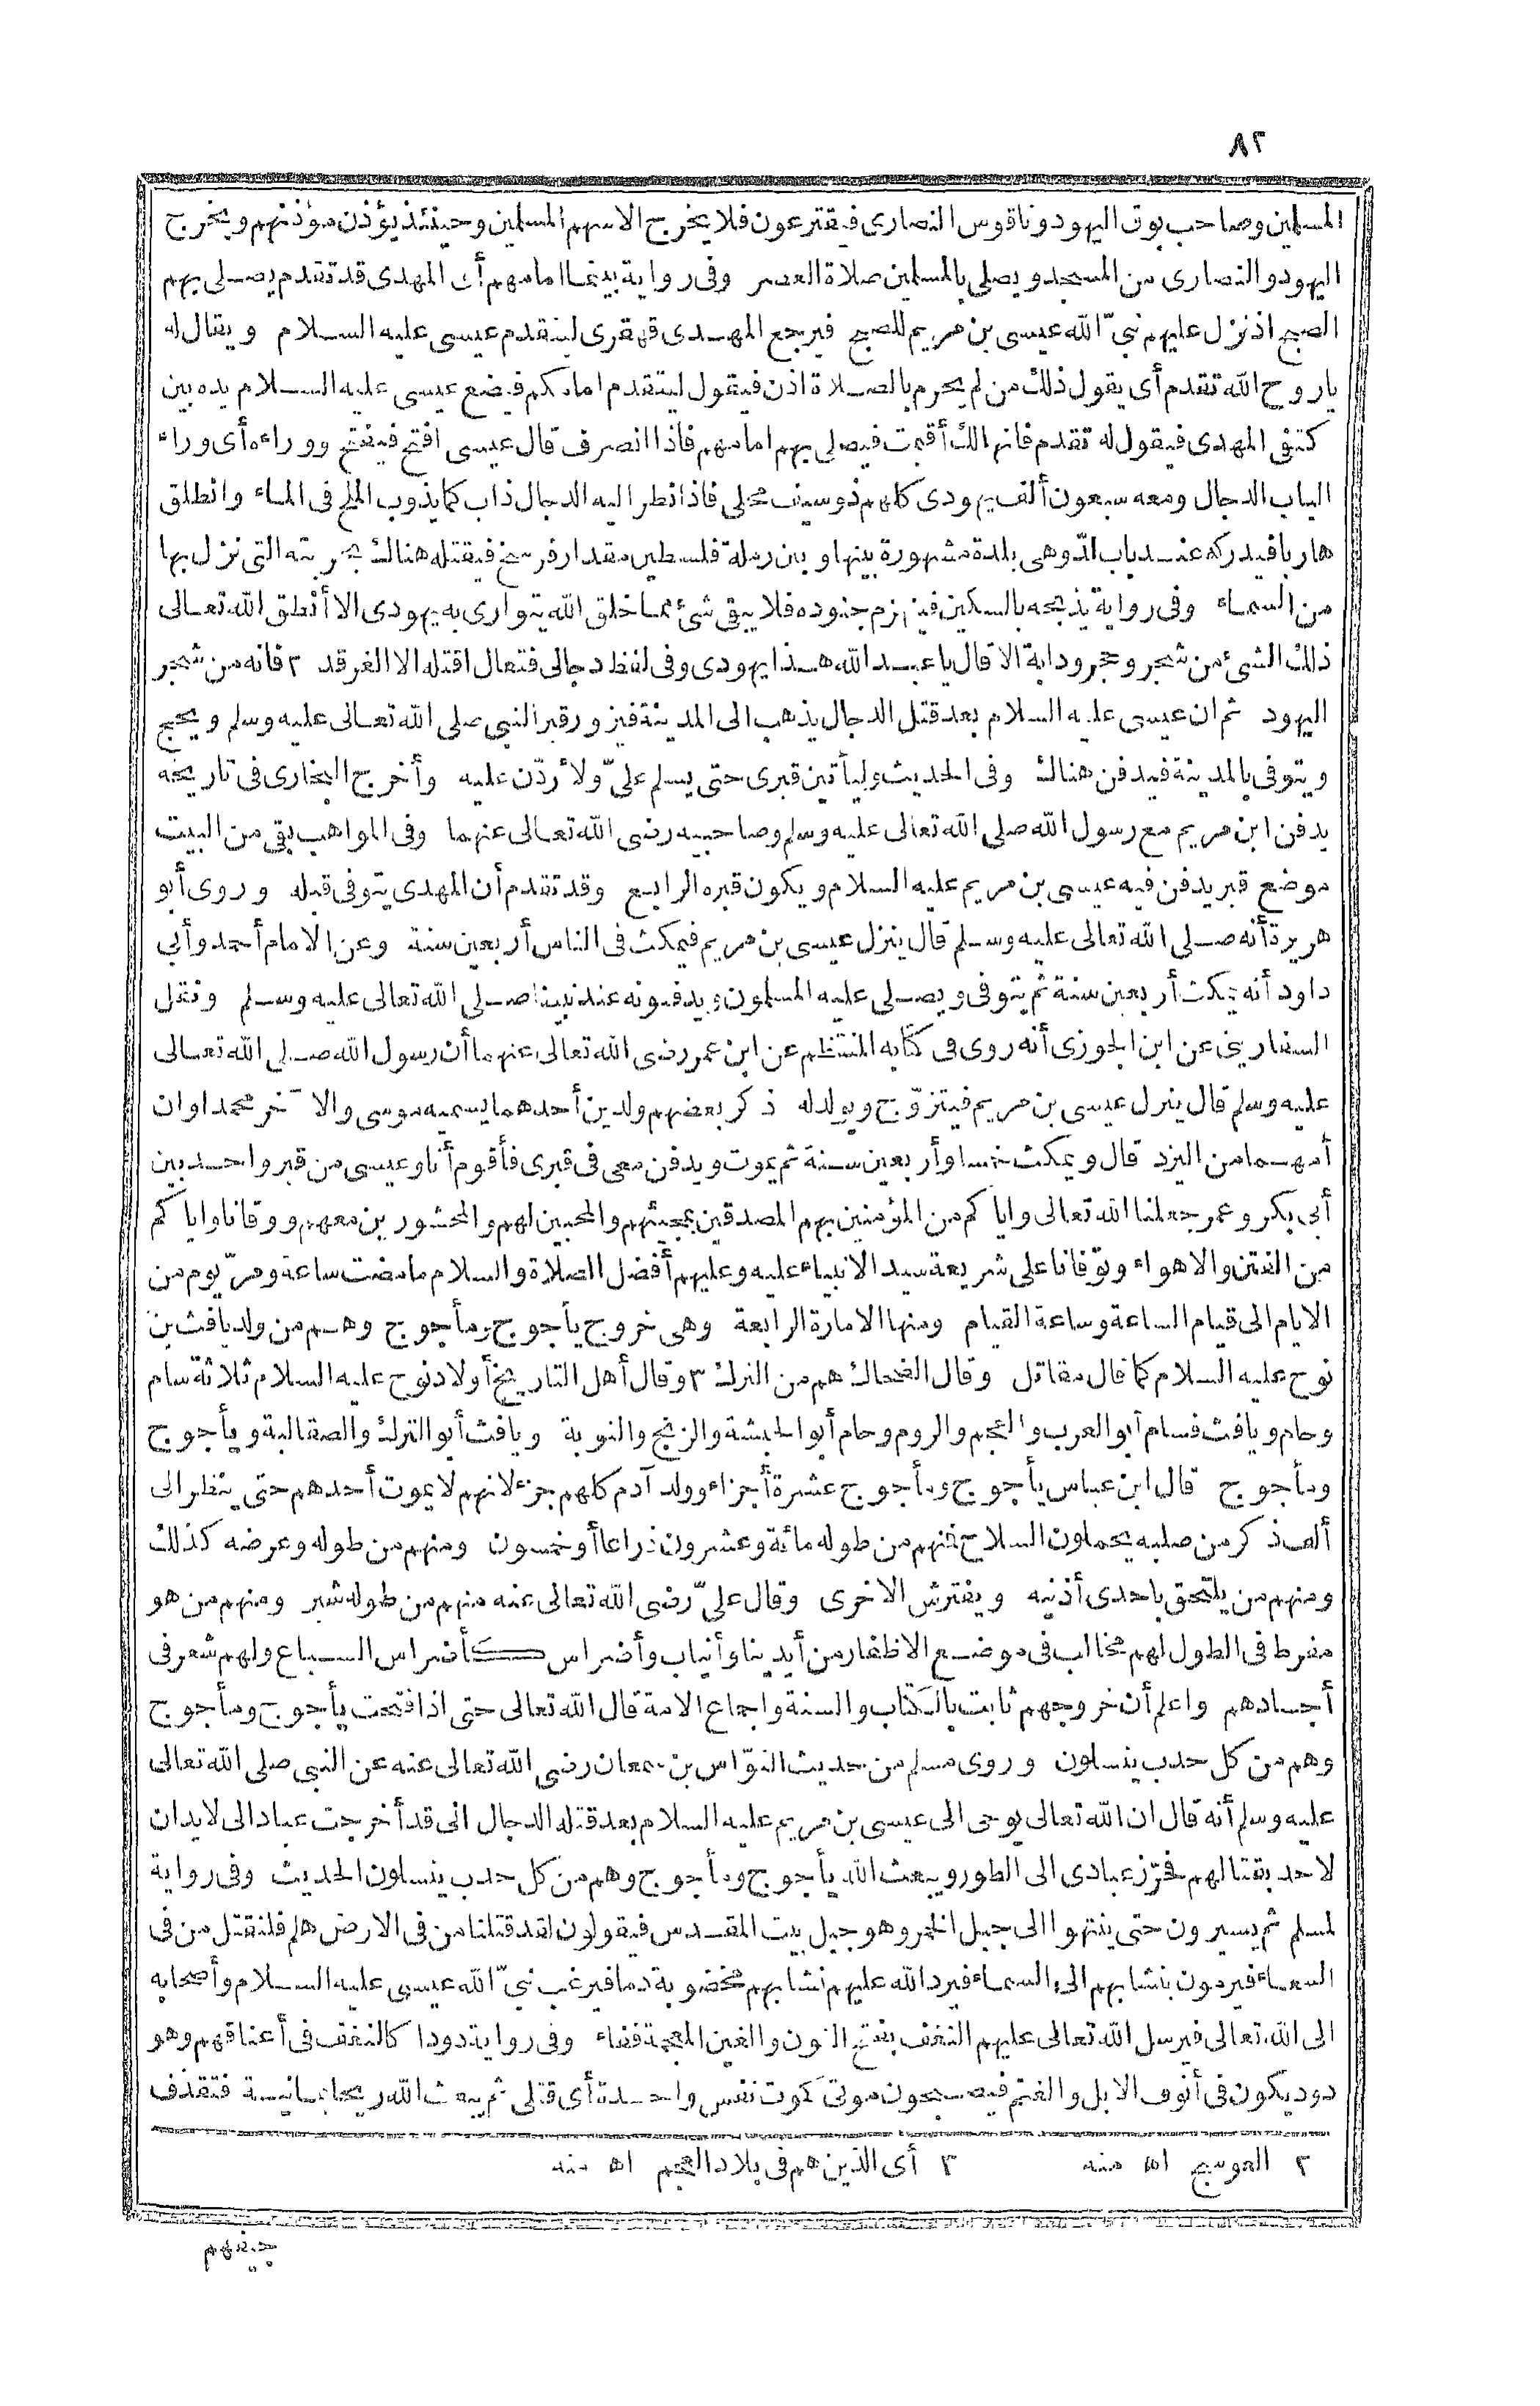 ٨٢
المسلمين وصاحب بوق اليهود وناقوس النصارى فيقترعون فلا يخرج الا سهم المسلمين وحينئذ يؤذن مؤذنهم ويخرج
اليهود والنصارى من المسجد ويصلى بالمسلمين صلاة العصر وفى رواية بينما امامهم أى المهدى قد تقدم يصلى بهم
الصبح اذ نزل عليهم نبىّ الله عيسى بن مريم للصبح فيرجع المهدى قهقرى ليتقدم عيسى عليه السلام ويقال له
يا روح الله تقدم أى يقول ذلك من لم يحرم بالصلاة اذن فيقول ليتقدم امامكم فيضع عيسى عليه السلام يده بين
كتفى المهدى فيقول له تقدم فانها لك أقيمت فيصلى بهم امامهم فاذا انصرف قال عيسى افتح فيفتح ووراءه أى وراء
الباب الدجال ومعه سبعون ألف يهودى كلهم ذو سيف محلى فاذا نظر اليه الدجال ذاب كما يذوب الملح فى الماء وانطلق
هاربا فيدركه عند باب اللدّ وهى بلدة مشهورة بينها وبين رملة فلسطين مقدار فرسخ فيقتله هناك بحربته التى نزل بها
من السماء وفى رواية يذبحه بالسكين فينهزم جنوده فلا يبقى شئ مما خلق الله يتوارى به يهودى الا أنطق الله تعالى
ذلك الشئ من شجر وحجر ودابة الا قال يا عبد الله هذا يهودى وفى لفظ دجالى فتعال اقتله الا الغرقد ٢ فانه من شجر
اليهود ثم ان عيسى عليه السلام بعد قتل الدجال يذهب الى المدينة فيزور قبر النبى صلى الله تعالى عليه وسلم ويحج
ويتوفى بالمدينة فيدفن هناك وفى الحديث وليأتين قبرى حتى يسلم علىّ ولأردّن عليه وأخرج البخارى فى تاريخه
يدفن ابن مريم مع رسول الله صلى الله تعالى عليه وسلم وصاحبيه رضى الله تعالى عنهما وفى المواهب بقى من البيت
موضع قبر يدفن فيه عيسى بن مريم عليه السلام ويكون قبره الرابع وقد تقدم أن المهدى يتوفى قبله وروى أبو
هريرة أنه صلى الله تعالى عليه وسلم قال ينزل عيسى بن مريم فيمكث فى الناس أربعين سنة وعن الامام أحمد وأبى
داود أنه يمكث أربعين سنة ثم يتوفى ويصلى عليه المسلمون ويدفنونه عند نبينا صلى الله تعالى عليه وسلم ونقل
السفارينى عن ابن الجوزى أنه روى فى كتابه المنتظم عن ابن عمر رضى الله تعالى عنهما أن رسول الله صلى الله تعالى
عليه وسلم قال ينزل عيسى بن مريم فيتزوّج ويولد له ذكر بعضهم ولدين أحدهما يسميه موسى والآخر محمدا وان
أمهما من اليزد قال ويمكث خمسا وأربعين سنة ثم يموت ويدفن معى فى قبرى فأقوم أنا وعيسى من قبر واحد بين
أبى بكر وعمر جعلنا الله تعالى واياكم من المؤمنين بهم المصدقين بمجيئهم والمحبين لهم والمحشورين معهم ووقانا واياكم
من الفتن والاهواء وتوّفانا على شريعة سيد الانبياء عليه وعليهم أفضل الصلاة والسلام ما مضت ساعة ومرّ يوم من
الايام الى قيام الساعة وساعة القيام ومنها الامارة الرابعة وهى خروج يأجوج ومأجوج وهم من ولد يافث بن
نوح عليه السلام كما قال مقاتل وقال الضحاك هم من الترك ٣ وقال أهل التاريخ أولاد نوح عليه السلام ثلاثة سام
وحام ويافث فسام أبو العرب والعجم والروم وحام أبو الحبشة والزنج والنوبة ويافث أبو الترك والصقالبة ويأجوج
ومأجوج قال ابن عباس يأجوج ومأجوج عشرة أجزاء وولد آدم كلهم جزء لانهم لا يموت أحدهم حتى ينظر الى
ألف ذكر من صلبه يحملون السلاح فمنهم من طوله مائة وعشرون ذراعا أو خمسون ومنهم من طوله وعرضه كذلك
ومنهم من يلتحق باحدى أذنيه ويفترش الاخرى وقال علىّ رضى الله تعالى عنه منهم من طوله شبر ومنهم من هو
مفرط فى الطول لهم مخالب فى موضع الاظفار من أيدينا وأنياب وأضراس كأضراس السباع ولهم شعر فى
أجسادهم واعلم أن خروجهم ثابت بالكتاب والسنة واجماع الامة قال الله تعالى حتى اذا فتحت يأجوج ومأجوج
وهم من كل حدب ينسلون وروى مسلم من حديث النوّاس بن سمعان رضى الله تعالى عنه عن النبى صلى الله تعالى
عليه وسلم أنه قال ان الله تعالى يوحى الى عيسى بن مريم عليه السلام بعد قتله الدجال انى قد أخرجت عبادا لى لا يدان
لاحد بقتالهم فحرّز عبادى الى الطور ويبعث الله يأجوج ومأجوج وهم من كل حدب ينسلون الحديث وفى رواية
لمسلم ثم يسيرون حتى ينتهوا الى جبل الخمر وهو جبل بيت المقدس فيقولون لقد قتلنا من فى الارض هلم فلنقتل من فى
السماء فيرمون بنشابهم الى السماء فيرد الله عليهم نشابهم مخضوبة دما فيرغب نبىّ الله عيسى عليه السلام وأصحابه
الى الله تعالى فيرسل الله تعالى عليهم النغف بفتح النون والغين المعجمة ففاء وفى رواية دودا كالنغف فى أعناقهم وهو
دود يكون فى أنوف الابل والغنم فيصبحون موتى كموت نفس واحدة أى قتلى ثم يبعث الله ريحا يمانية فتقذف
٢ العوسج اه منه ٣ أى الذين هم فى بلاد العجم اه منه
جيفهم